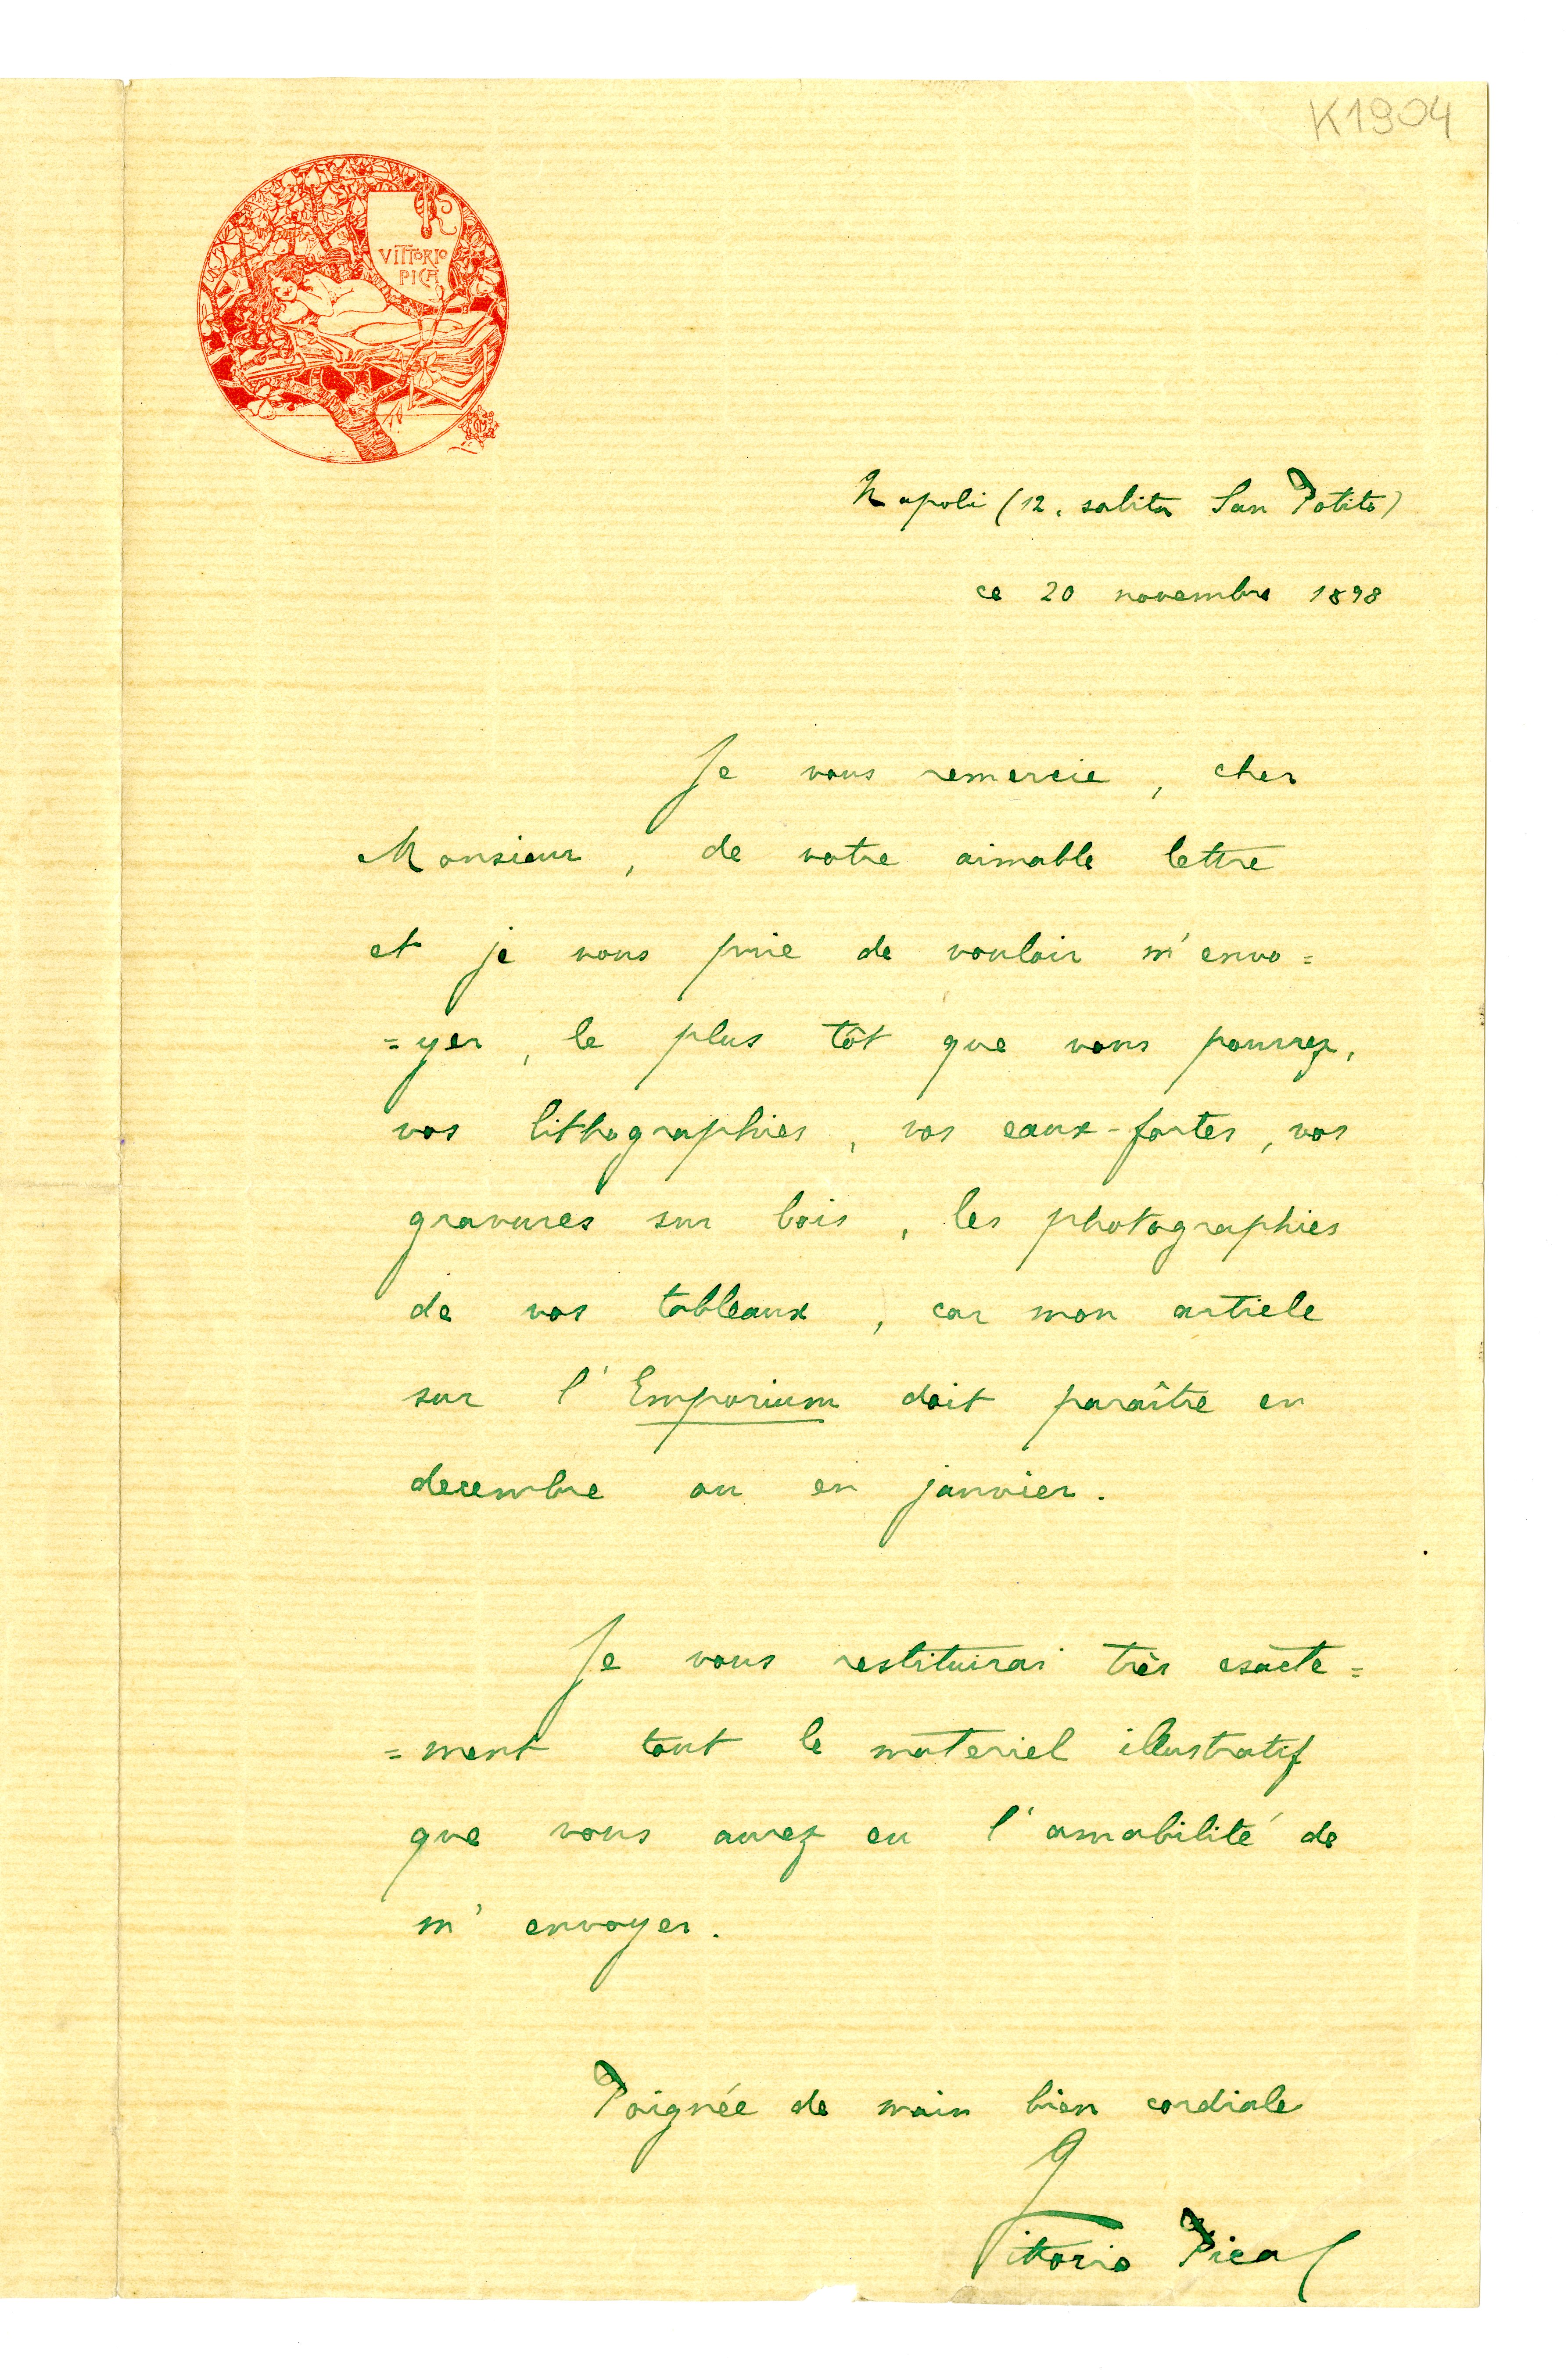 K1904
VITTORIO
PICA
Napoli (12, salita San Potito)
ce 20 novembre 1898
Je vous remercie, cher
Monsieur, de votre aimable lettre
et je vous prie de vouloir m'envo=
=yer, le plus tôt que vous pourrez,
vos lithographies, vos eaux-fortes, vos
gravures sur bois, les photographies
de vos tableaux, car mon article
sur l'Emporium doit paraître en
decembre ou en janvier.
Je vous restituirai très esacte=
=ment tout le materiel illustratif
que vous aurez eu l'amabilité de
m'envoyer.
Poignée de main bien cordiale
Vittorio Pica